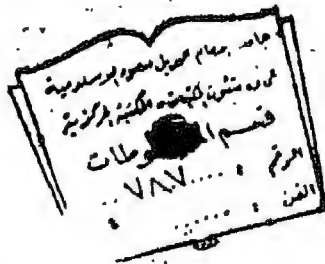 جامعة الإمام محمد بن سعود الإسلامية
عمادة شئون المكتبات - المكتبة المركزية
قسم المخطوطات
الرقم : ....٧٨٠٧....
الفن : ......